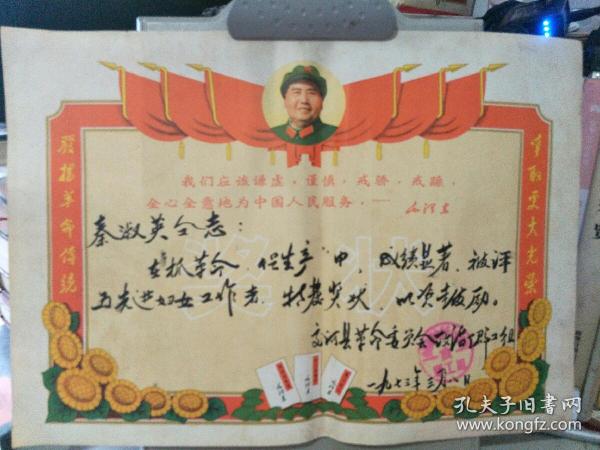 我们应该谦虚,谨慎,戒骄,戒躁,
全心全意地为中国人民服务,……
毛泽东
發揚革命傳統
爭取更大光榮
奖状
秦淑英仝志:
在“抓革命、促生产”中,成绩显著,被评
为先进妇女工作者,特发奖状,以资鼓励。
交河县革命委员会政治部工组
一九七三年三月八日
孔夫子旧书网
www.kongfz.com